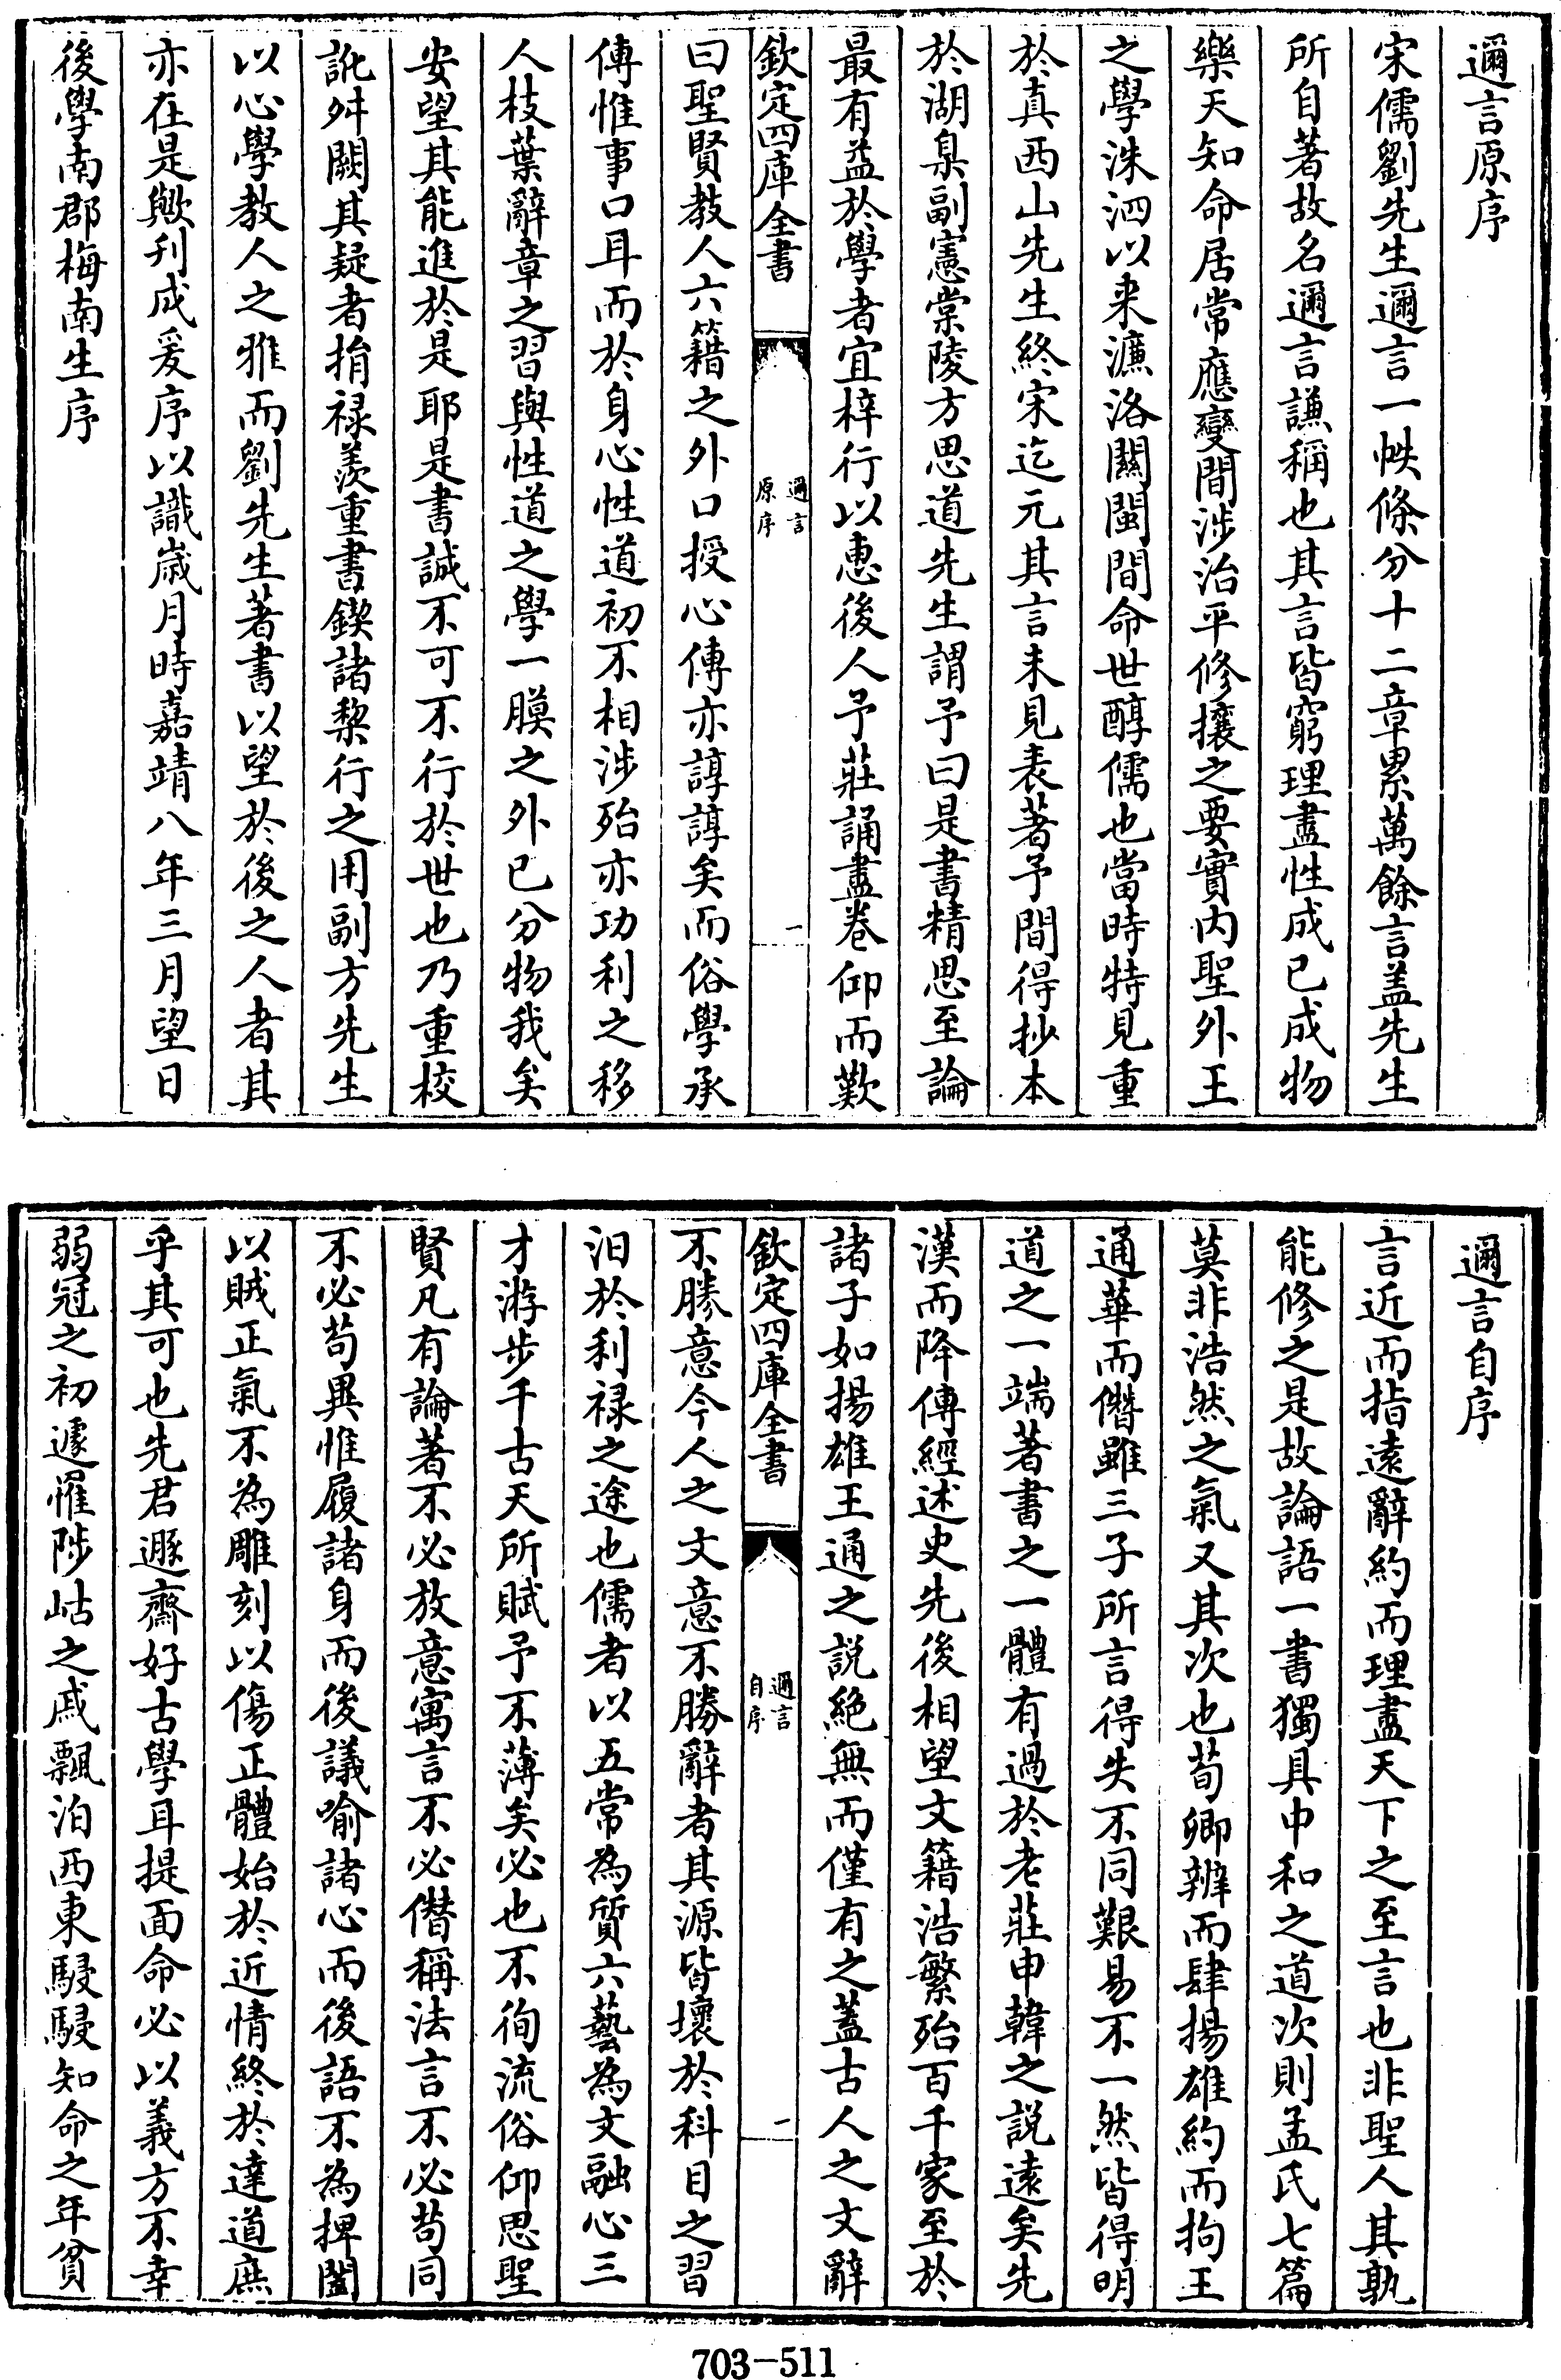 邇言原序
宋儒劉先生邇言一帙條分十二章累萬餘言盖先生
所自著故名邇言謙稱也其言皆窮理盡性成已成物
樂天知命居常應變間涉治平修攘之要實内聖外王
之學洙泗以来濂洛關閩間命世醇儒也當時特見重
於真西山先生終宋迄元其言未見表著予間得抄本
於湖臬副憲棠陵方思道先生謂予曰是書精思至論
最有益於學者宜梓行以惠後人予莊誦盡卷仰而歎
欽定四庫全書
邇言
原序
一
曰聖賢教人六籍之外口授心傳亦諄諄矣而俗學承
傳惟事口耳而於身心性道初不相涉殆亦功利之移
人枝葉辭章之習與性道之學一膜之外已分物我矣
安望其能進於是耶是書誠不可不行於世也乃重校
訛舛闕其疑者捐禄羨重書鍥諸棃行之用副方先生
以心學教人之雅而劉先生著書以望於後之人者其
亦在是歟刋成爰序以識嵗月時嘉靖八年三月望日
後學南郡梅南生序
邇言自序
言近而指遠辭約而理盡天下之至言也非聖人其孰
能修之是故論語一書獨具中和之道次則孟氏七篇
莫非浩然之氣又其次也荀卿辨而肆揚雄約而拘王
通華而僭雖三子所言得失不同艱易不一然皆得明
道之一端著書之一體有過於老莊申韓之説遠矣先
漢而降傳經述史先後相望文籍浩繁殆百千家至於
諸子如揚雄王通之説絶無而僅有之蓋古人之文辭
欽定四庫全書
邇言
自序
一
不勝意今人之文意不勝辭者其源皆壞於科目之習
汨於利禄之途也儒者以五常為質六藝為文融心三
才游步千古天所賦予不薄矣必也不徇流俗仰思聖
賢凡有論著不必放意寓言不必僭稱法言不必苟同
不必苟異惟履諸身而後議喻諸心而後語不為捭闔
以賊正氣不為雕刻以傷正體始於近情終於達道庶
乎其可也先君遯齋好古學耳提面命必以義方不幸
弱冠之初遽罹陟岵之戚飄泊西東駸駸知命之年貧
703-511